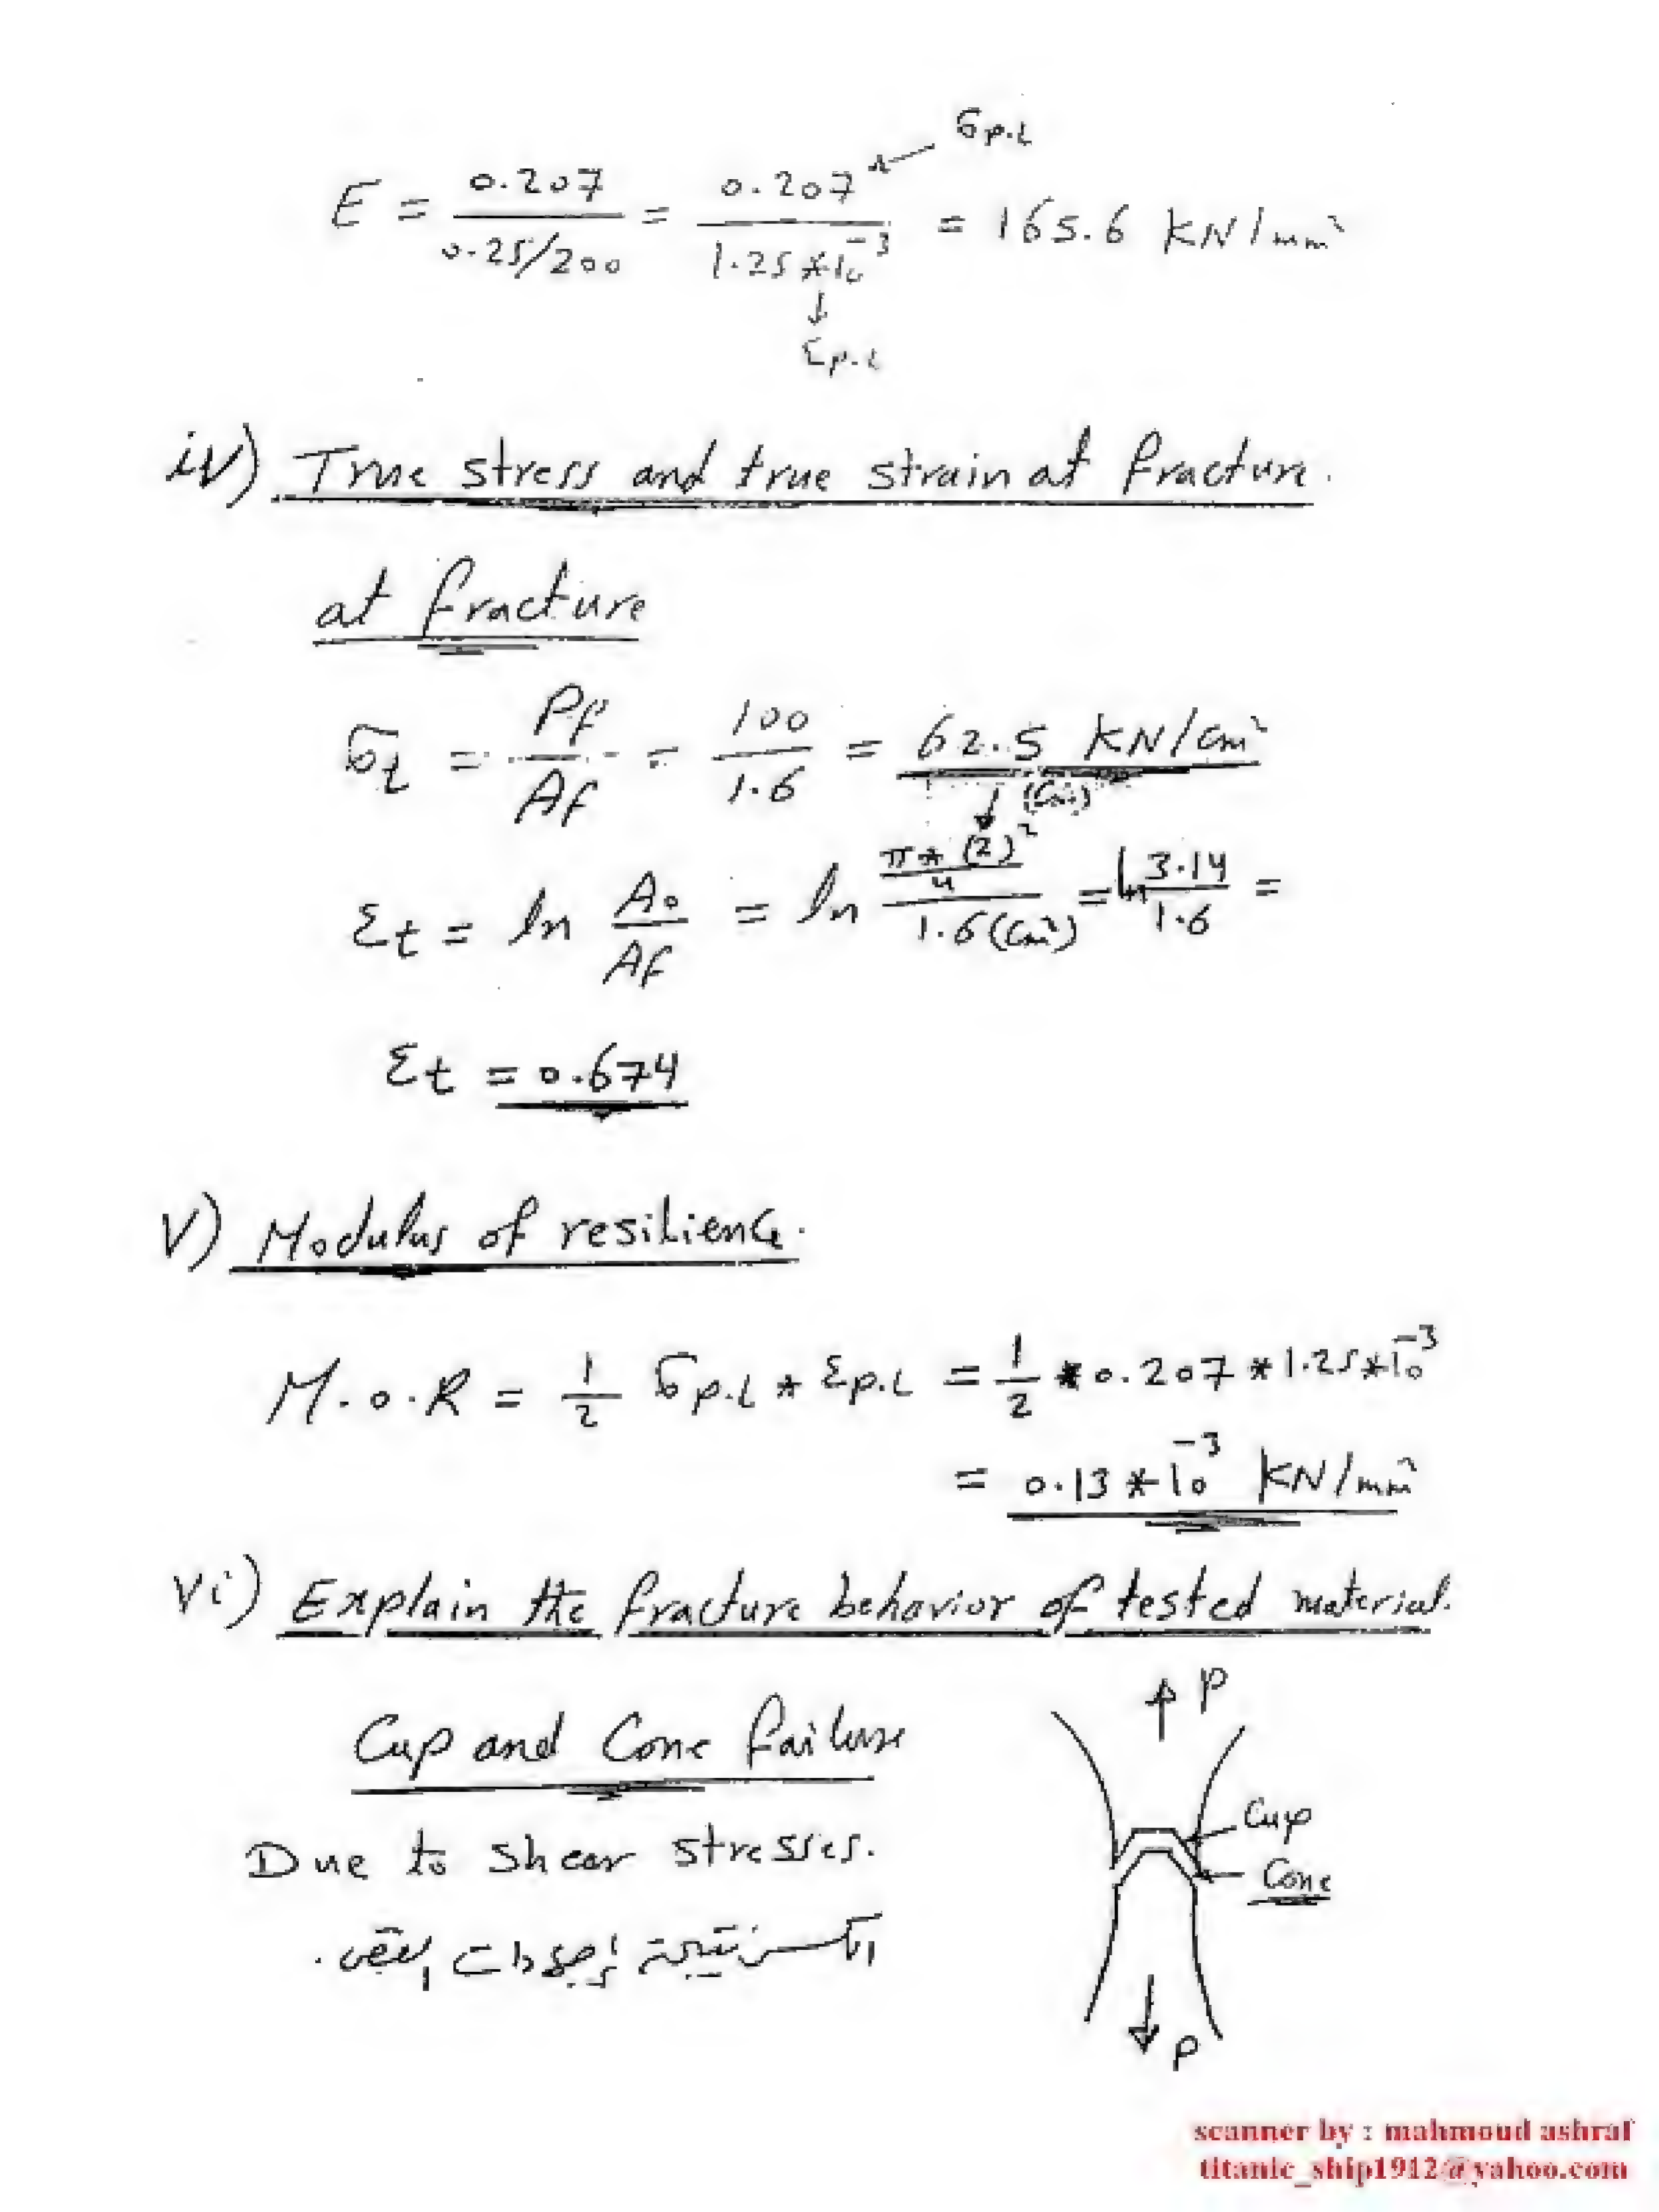 σp.L
E = 0.207 / 0.25/200 = 0.207 / 1.25*10⁻³ = 165.6 KN/mm²
εp.L
iv) True stress and true strain at fracture.
at fracture
σt = Pf / Af = 100 / 1.6 = 62.5 KN/cm²
(cm)
εt = ln Ao / Af = ln π*(2)²/4 / 1.6(cm²) = ln 3.14 / 1.6 =
εt = 0.674
V) Modulus of resilience.
M.o.R = 1/2 σp.L * εp.L = 1/2 * 0.207 * 1.25*10⁻³
= 0.13*10⁻³ KN/mm²
Vi) Explain the fracture behavior of tested material.
P
Cup and Cone failure
Cup
Due to shear stresses.
Cone
الكسر نتيجة إجهادات القص.
P
scanner by : mahmoud ashraf
titanic_ship1912@yahoo.com